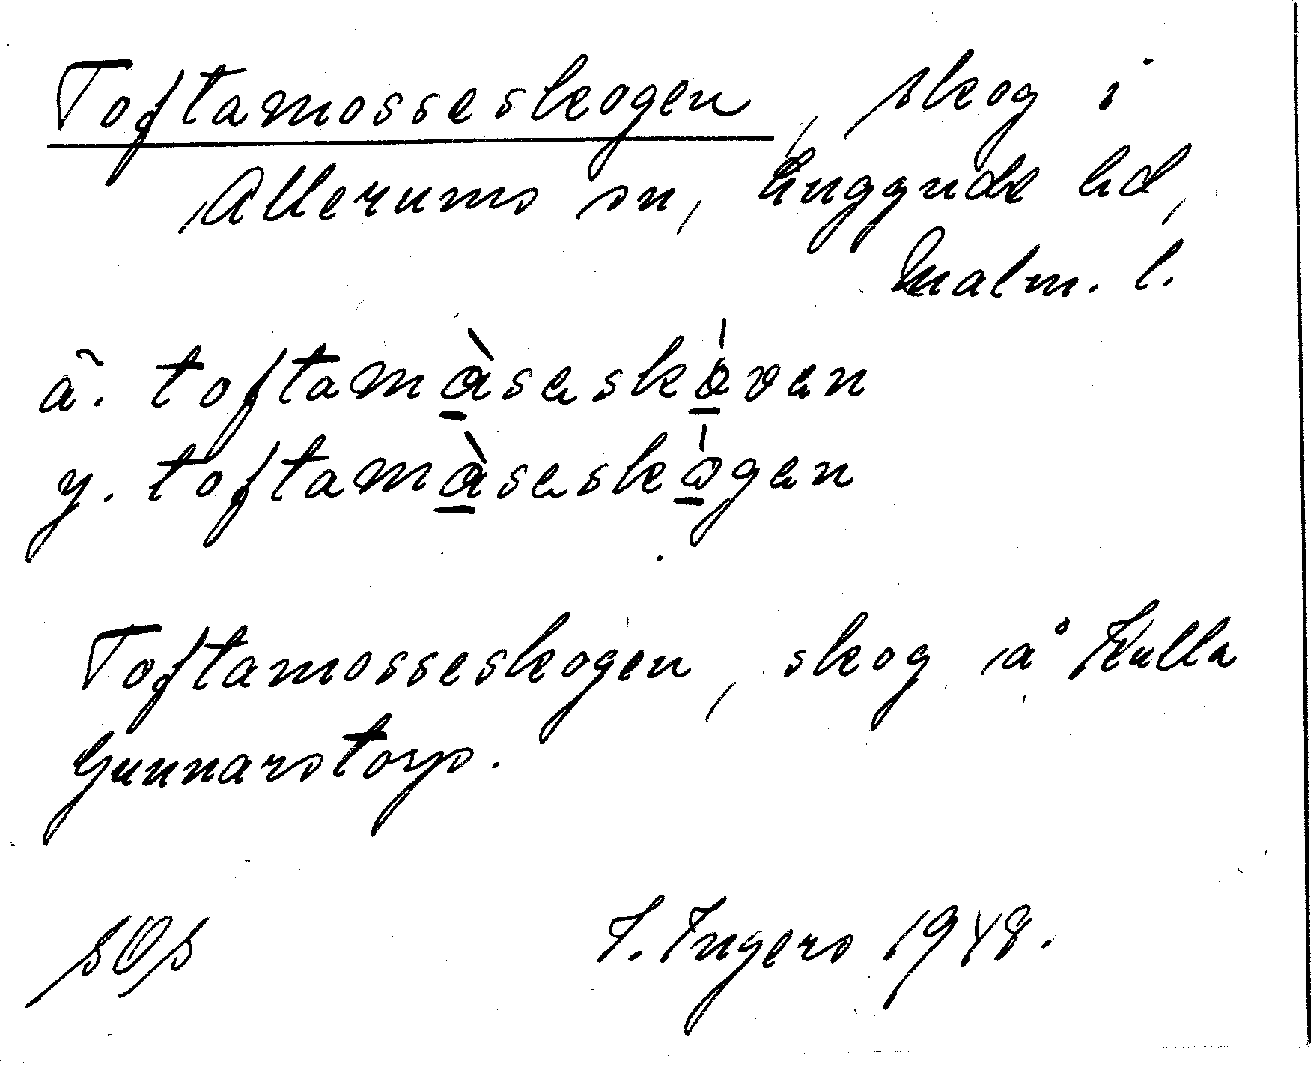 Toftamosseskogen, skog i
Allerums sn, Luggude hd,
Malm. l.
ä. toftamàseskóven
y. toftamàseskógen
Toftamosseskogen, skog å Kulla
Gunnarstorp.
sOs I. Ingers 1948.